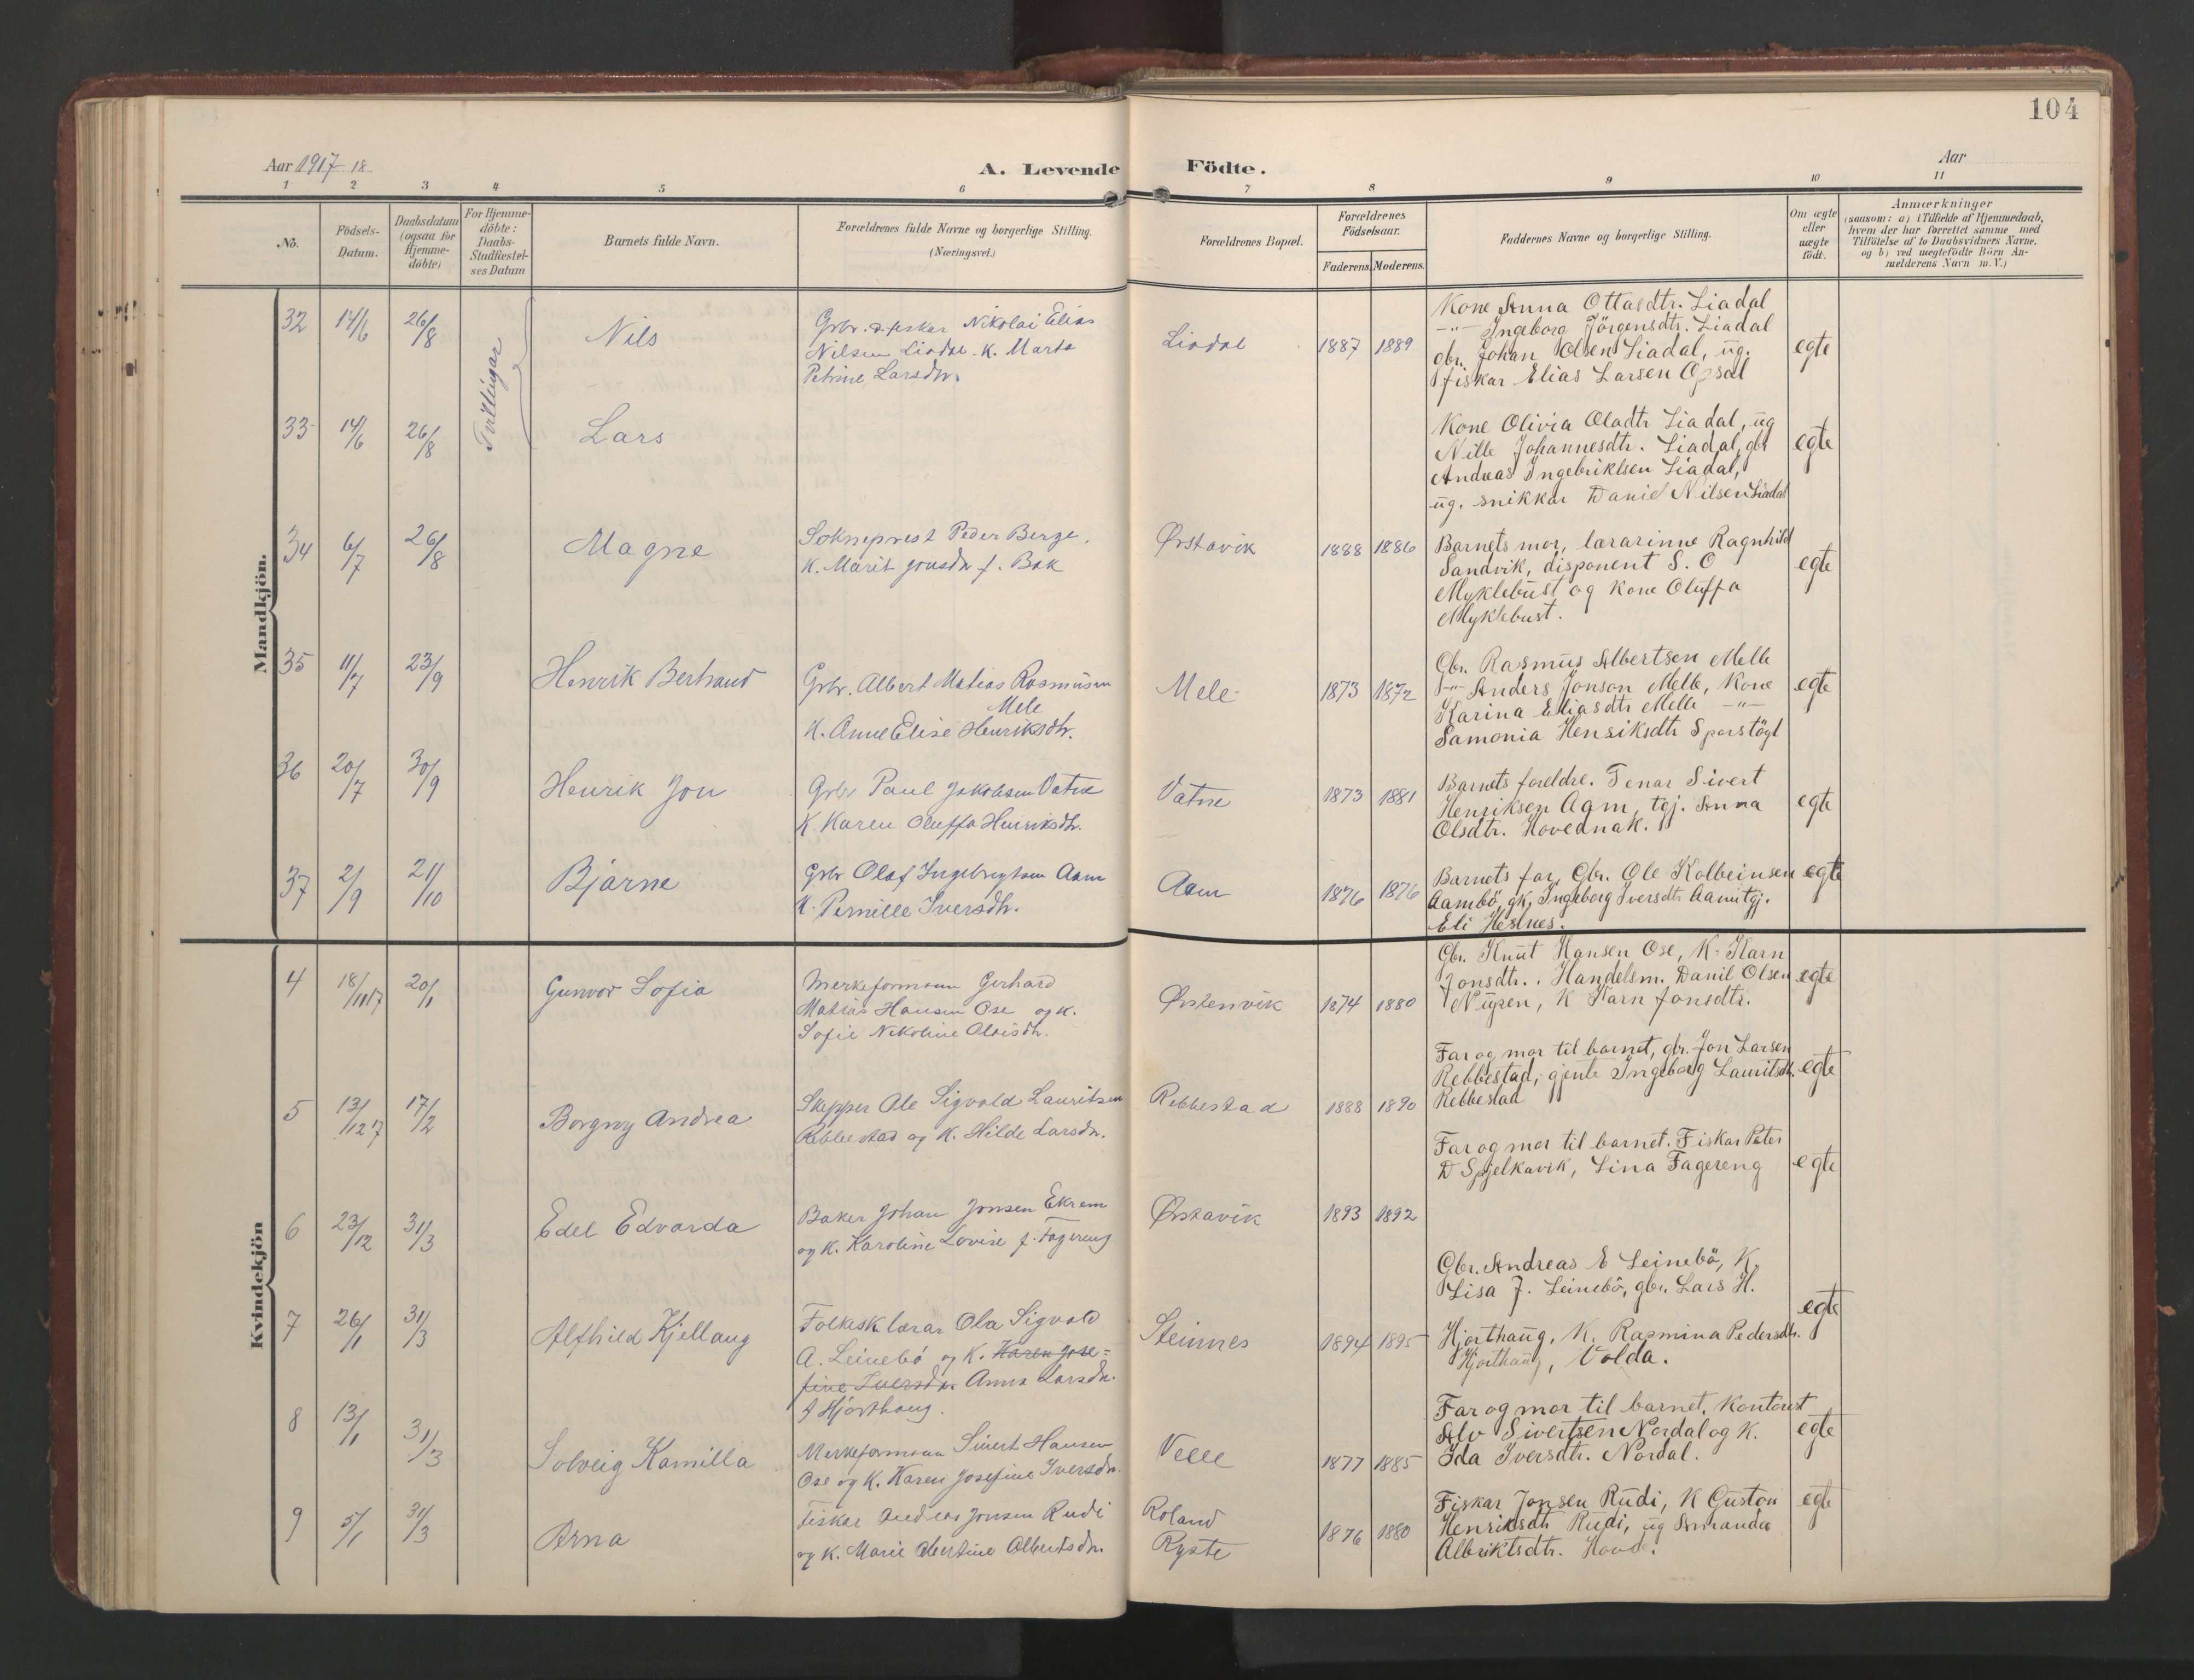 104
Aar 1917-18.
A. Levende Födte.
Aar
1 2 3 4 5 6 7 8 9 10 11
No.
Födsels-Datum.
Daabsdatum (ogsaa for Hjemme-döbte)
For Hjemme-döbte: Daabs-Stadfæstel-ses Datum
Barnets fulde Navn.
Forældrenes fulde Navne og borgerlige Stilling.
(Næringsvei.)
Forældrenes Bopæl.
Forældrenes Födselsaar.
Faderens. Moderens.
Faddernes Navne og borgerlige Stilling.
Om ægte eller uægte födt.
Anmærkninger
(saasom: a) i Tilfælde af Hjemmedaab,
hvem der har forrettet samme, med
Tilföielse af to Daabsvidners Navne,
og b) ved uægtefödte Börn An-
melderens Navn m. V.)
Mandkjön.
32 14/6 26/8 Tvillingar Nils
Grbr. & fiskar Nikolai Elias
Nilsen Liadal. K. Marta
Petrine Larsdtr.
Liadal 1887 1889
Kone Anna Ottasdtr. Liadal
-"- Ingeborg Jörgensdtr. Liadal
gbr. Johan Olsen Liadal, ug.
fiskar Elias Larsen Opsal
egte
33 14/6 26/8 Lars
Kone Olivia Oladtr Liadal, ug
Nille Johannesdtr. Liadal, gbr
Andreas Ingebriktsen Liadal,
ug. snikkar Daniel Nilsen Liadal
egte
34 6/7 26/8 Magne
Sokneprest Peder Berge.
K. Marit Jonsdtr f. Bak
Ørstavik 1888 1886
Barnets mor, lærarinne Ragnhild
Sandvik, disponent S. O
Myklebust og Kone Oluffa
Myklebust.
egte
35 11/7 23/9 Henrik Bertrand
Grbr. Albert Matias Rasmusen
Mele
K. Anne Elise Henriksdtr.
Mele 1873 1872
Gbr. Rasmus Albertsen Melle
-"- Anders Jonson Melle, Kone
Karina Eliasdtr Melle -"-
Samonia Henriksdtr
egte
36 20/7 30/9 Henrik Jon
Grbr Paul Jakobsen Vatne
K. Karen Oluffa Henriksdtr.
Vatne 1873 1881
Barnets foreldre. Tenar Sivert
Henriksen Aam, tgj. Anna
Olsdtr. Hovednak.
egte
37 2/9 21/10 Bjarne
Grbr Olaf Ingebrigtsen Aam
K. Pernille Iversdtr.
Aam 1876 1876
Barnets far, Gbr. Ole Kolbeinsen
Aambö, gk. Ingeborg Iversdtr Aam tgj.
Eli Hesnes.
egte
Kvindekjön
4 18/11 17 20/1 Gunvor Sofia
Merkeformann Gerhard
Matias Hansen Ose og K.
Sofie Nikoline Olaisdtr.
Ørstenvik 1874 1880
Gbr. Knut Hansen Ose, K. Karn
Jonsdtr. Handelsm. Danil Olsen
Nygren, K Karn Jonsdtr.
egte
5 13/12 17 17/2 Borgny Andrea
Skipper Ole Sigvald Lauritsen
Rebbestad og K. Hilde Larsdtr.
Rebbestad 1888 1890
Far og mor til barnet, gbr. Jon Larsen
Rebbestad, gjente Ingeborg Lauritsdtr.
Rebbestad
egte
6 23/12 31/3 Edel Edvarda
Baker Johan Jonsen Ekrem
og K. Karoline Lovise f. Fagereng
Ørstavik 1893 1892
Far og mor til barnet. Fiskar Peter
D Spjelkavik, Lina Fagereng
egte
7 26/1 31/3 Alfhild Kjellaug
Folkesklærar Ola Sigvald
A. Leinebö og K. Karen Jose=
fine Iversdtr. Anna Larsdtr.
f Hjorthaug.
Steinnes 1894 1895
Gbr. Andreas E Leinebö, K.
Lisa J. Leinebö, gbr. Lars H.
Hjorthaug, K. Rasmina Pedersdtr.
Hjorthaug, Volda.
egte
8 13/1 31/3 Solveig Kamilla
Merkeformann Sivert Hansen
Ose og K. Karen Josefine Iversdtr.
Velle 1877 1885
Far og mor til barnet, Kontorist
Alv Sivertsen Nordal og K.
Ida Iversdtr. Nordal.
egte
9 5/1 31/3 Arna
Fiskar Andreas Jonsen Rudi
og K. Marie Albertine Albertsdtr.
Roland
Ryste
1876 1880
Fiskar Jonsen Rudi, K Guston
Henriksdtr Rudi, ug Amanda
Albriktsdtr.
egte